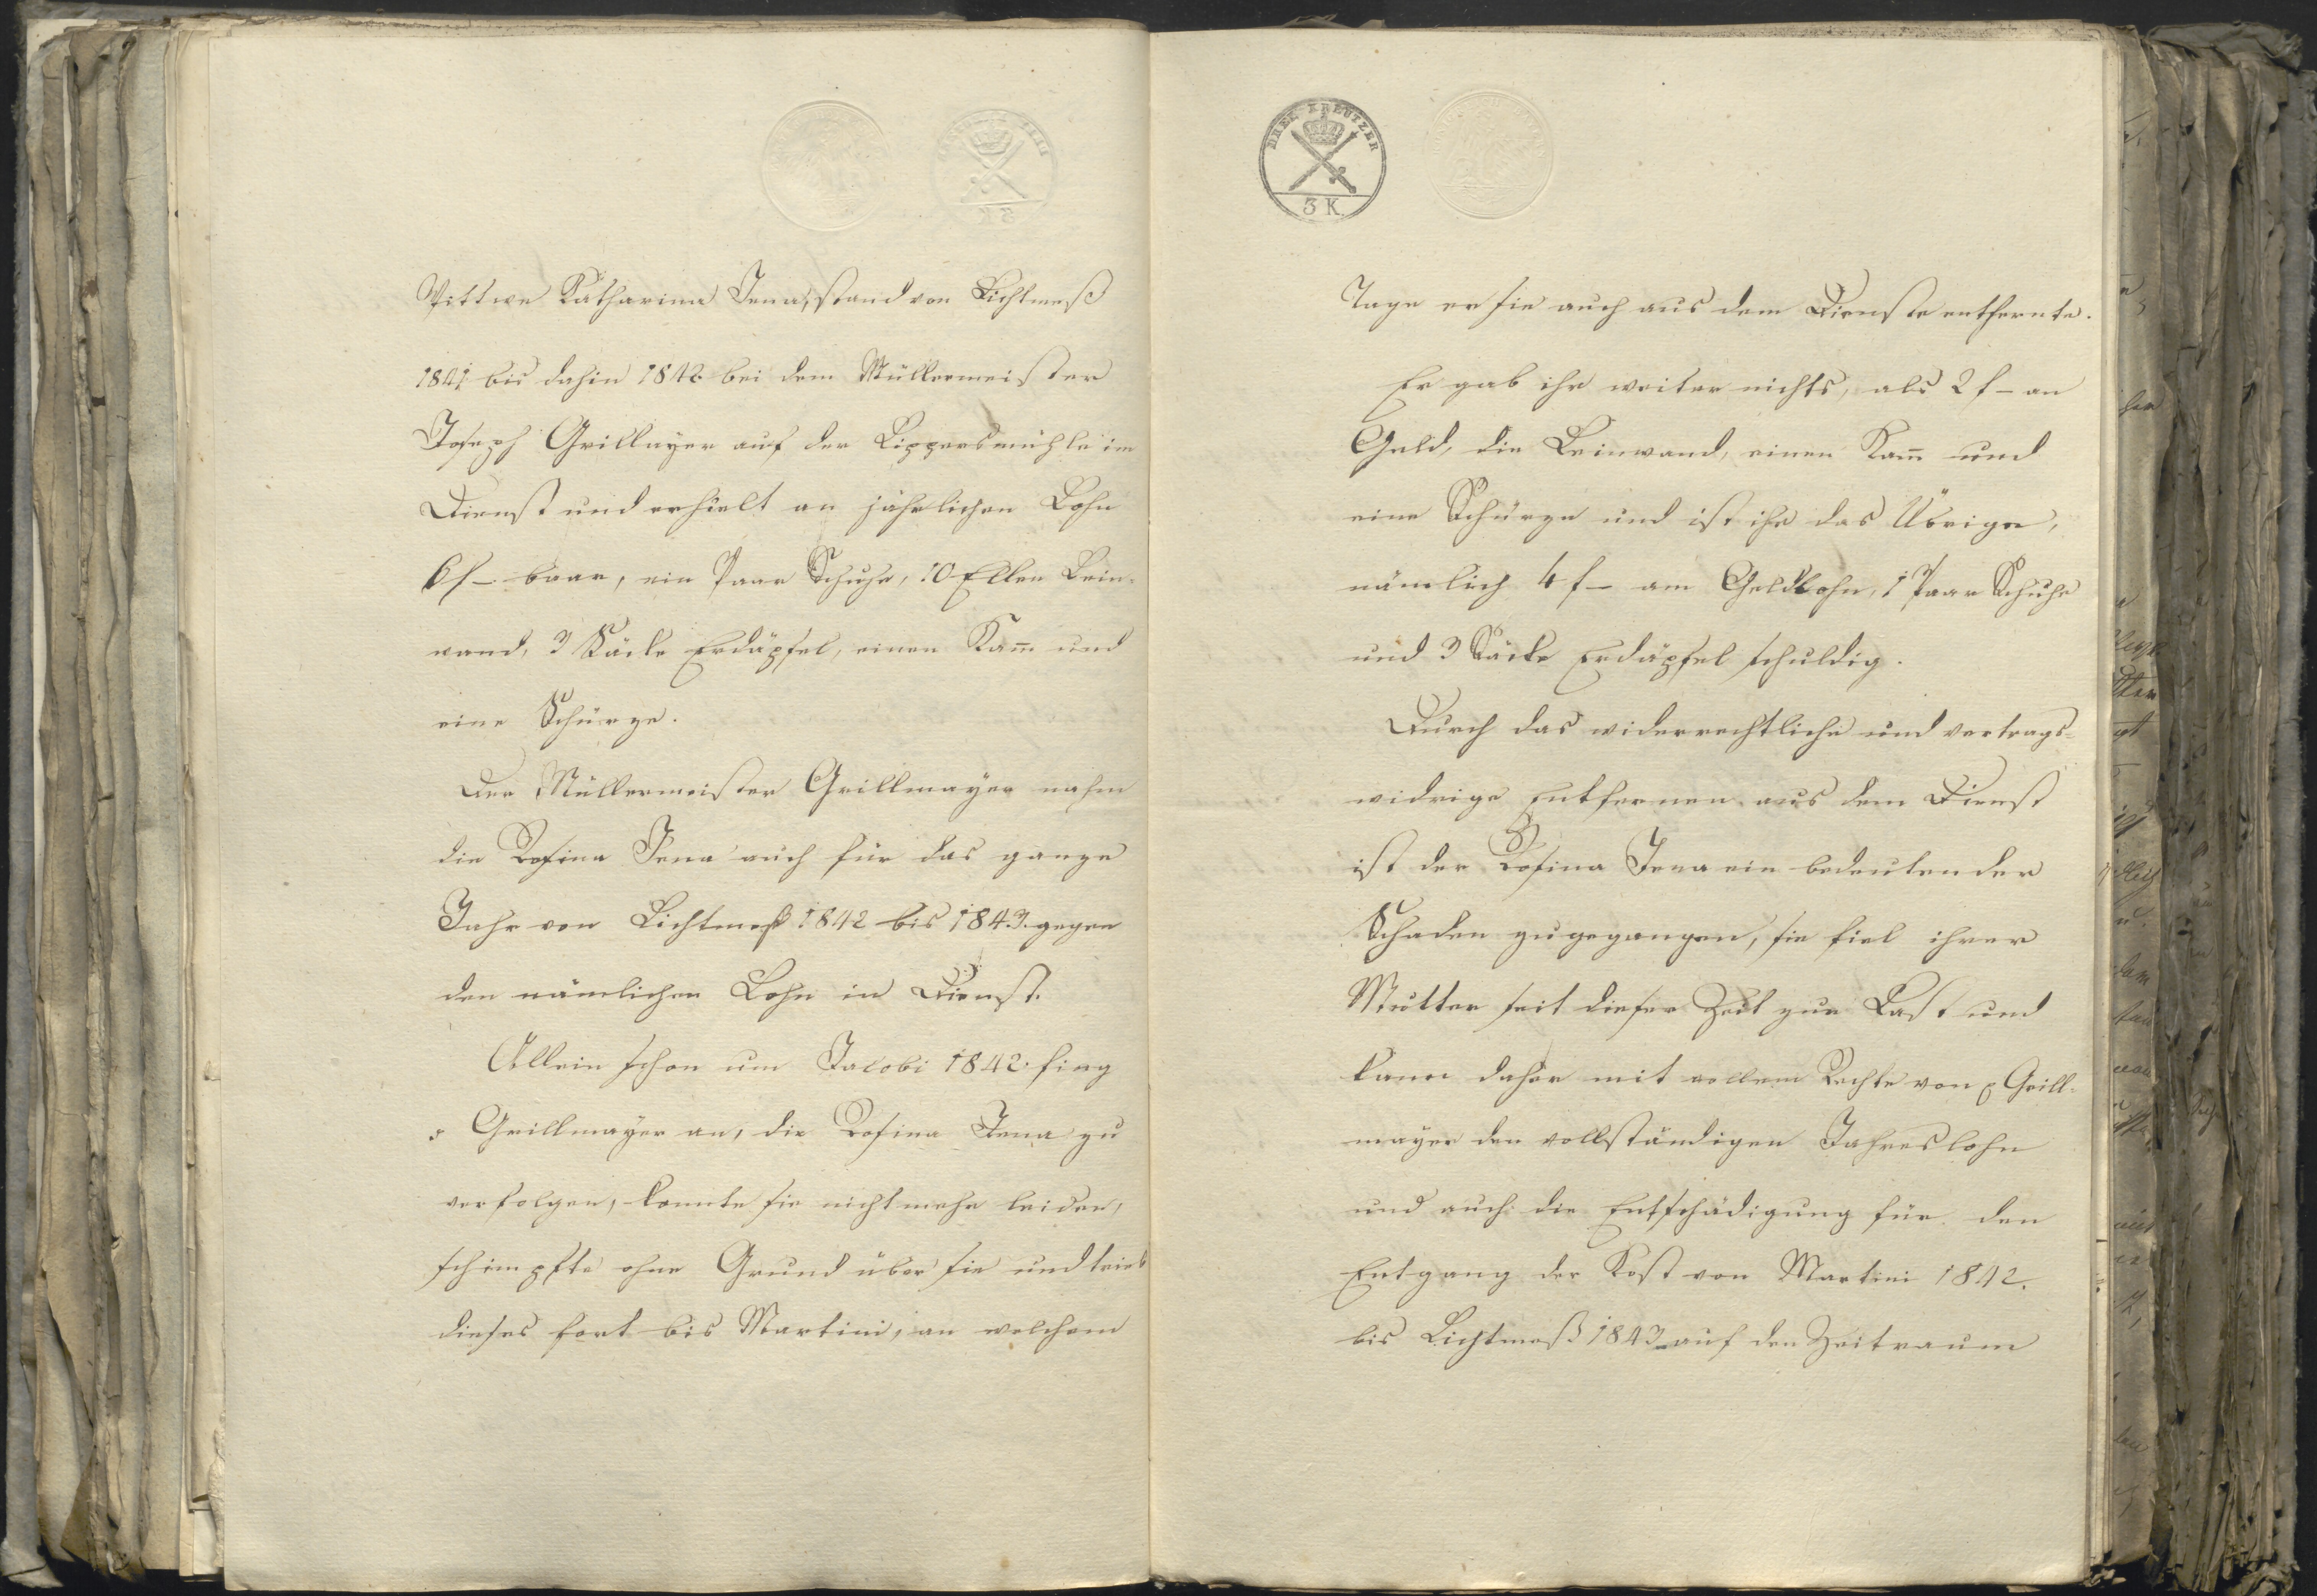 Wittwe Katharina Jena, stand von Lichtmeß
1841 bis dahin 1842 bei dem Müllermeister
Joseph Grillmayer auf der Lippersmühle im
Dienst und erhielt an jährlichen Lohn
6 f – baar, ein Paar Schuhe, 10 Ellen Lein-
wand, 3 Säcke Erdäpfel, einen Kam̄ und
eine Schürze.
Der Müllermeister Grillmayer nahm
die Rosina Jena auch für das ganze
Jahr von Lichtmeß 1842 bis 1843 gegen
den nämlichen Lohn in Dienst.
Allein schon um Jacobi 1842 fing
Grillmayer an, die Rosina Jena zu
verfolgen, konnte sie nicht mehr leiden,
schimpfte ohne Grund über sie und trieb
dieses fort bis Martini, an welchem
DREI KREUTZER
3 K.
Tage er sie auch aus dem Dienste entfernte.
Er gab ihr weiter nichts, als 2 f – an
Geld, die Leinwand, einen Kam̄ und
eine Schürze und ist ihr das Übrige,
nämlich 4 f – am Geldlohn, 1 Paar Schuhe
und 3 Säcke Erdäpfel schuldig.
Durch das widerrechtliche und vertrags-
widrige Entfernen aus dem Dienst
ist der Rosina Jena ein bedeutender
Schaden zugegangen, sie fiel ihrer
Mutter seit dieser Zeit zur Last und
kann daher mit vollem Rechte von Grill-
mayer den vollständigen Jahreslohn
und auch die Entschädigung für den
Entgang der Kost von Martini 1842.
bis Lichtmeß 1843 auf den Zeitraum